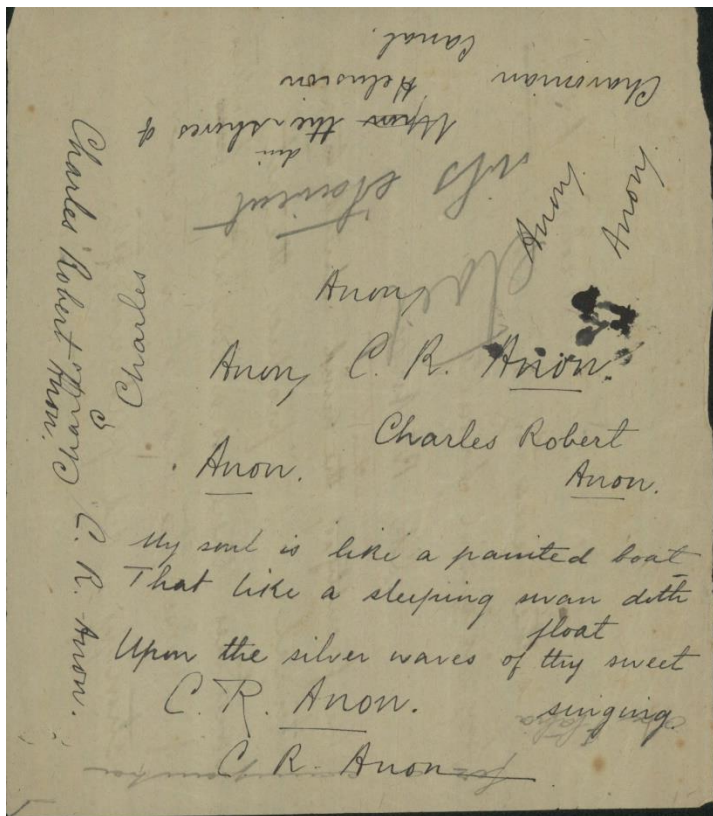 Charonian
Canal.
Upon the shores of
Anon
Anon
Anon
Anon C. R. Anon.
Charles Robert
Anon. Anon.
Charles
Charles Robert Anon.
C. R. Anon.
My soul is like a painted boat
That like a sleeping swan doth
float
Upon the silver waves of thy sweet
singing
C. R. Anon.
C. R. Anon